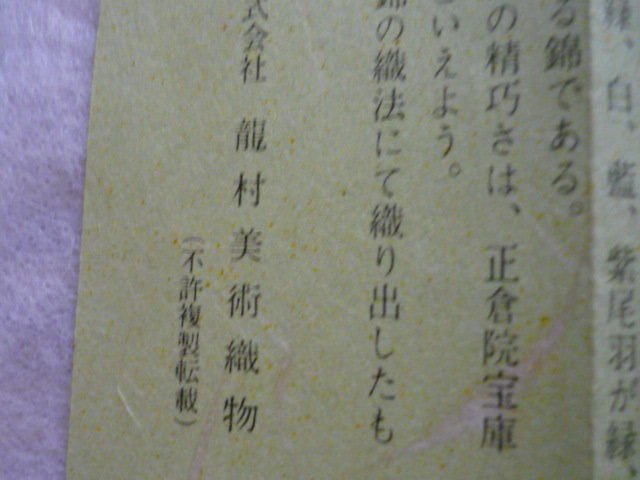 緑、白、藍、紫尾羽が緑、
る錦である。
の精巧さは、正倉院宝庫
いえよう。
錦の織法にて織り出したも
式会社 龍村美術織物
（不許複製転載）